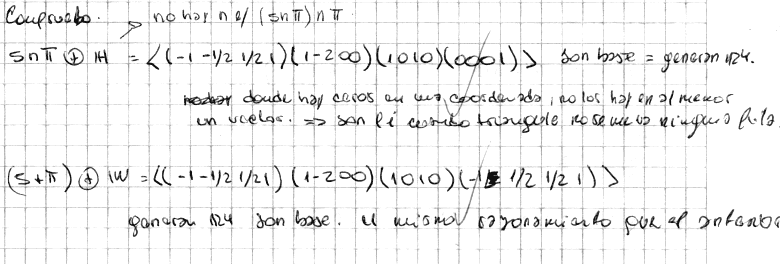 Compruebo. no hay n e/ (S∩π) ∩ π
S∩π ⊕ H = <(-1 -1/2 1/2 1)(1 -2 0 0)(1 0 1 0)(0 0 0 1)> son base = generan R4.
donde hay ceros en una coordenada, no los hay en al menos
un => son li cuando no se ninguna fila
(S+π) ⊕ W = <(-1 -1/2 1/2 1)(1 -2 0 0)(1 0 1 0)(-1 1/2 1/2 1)>
generan R4 son base. el mismo razonamiento que el